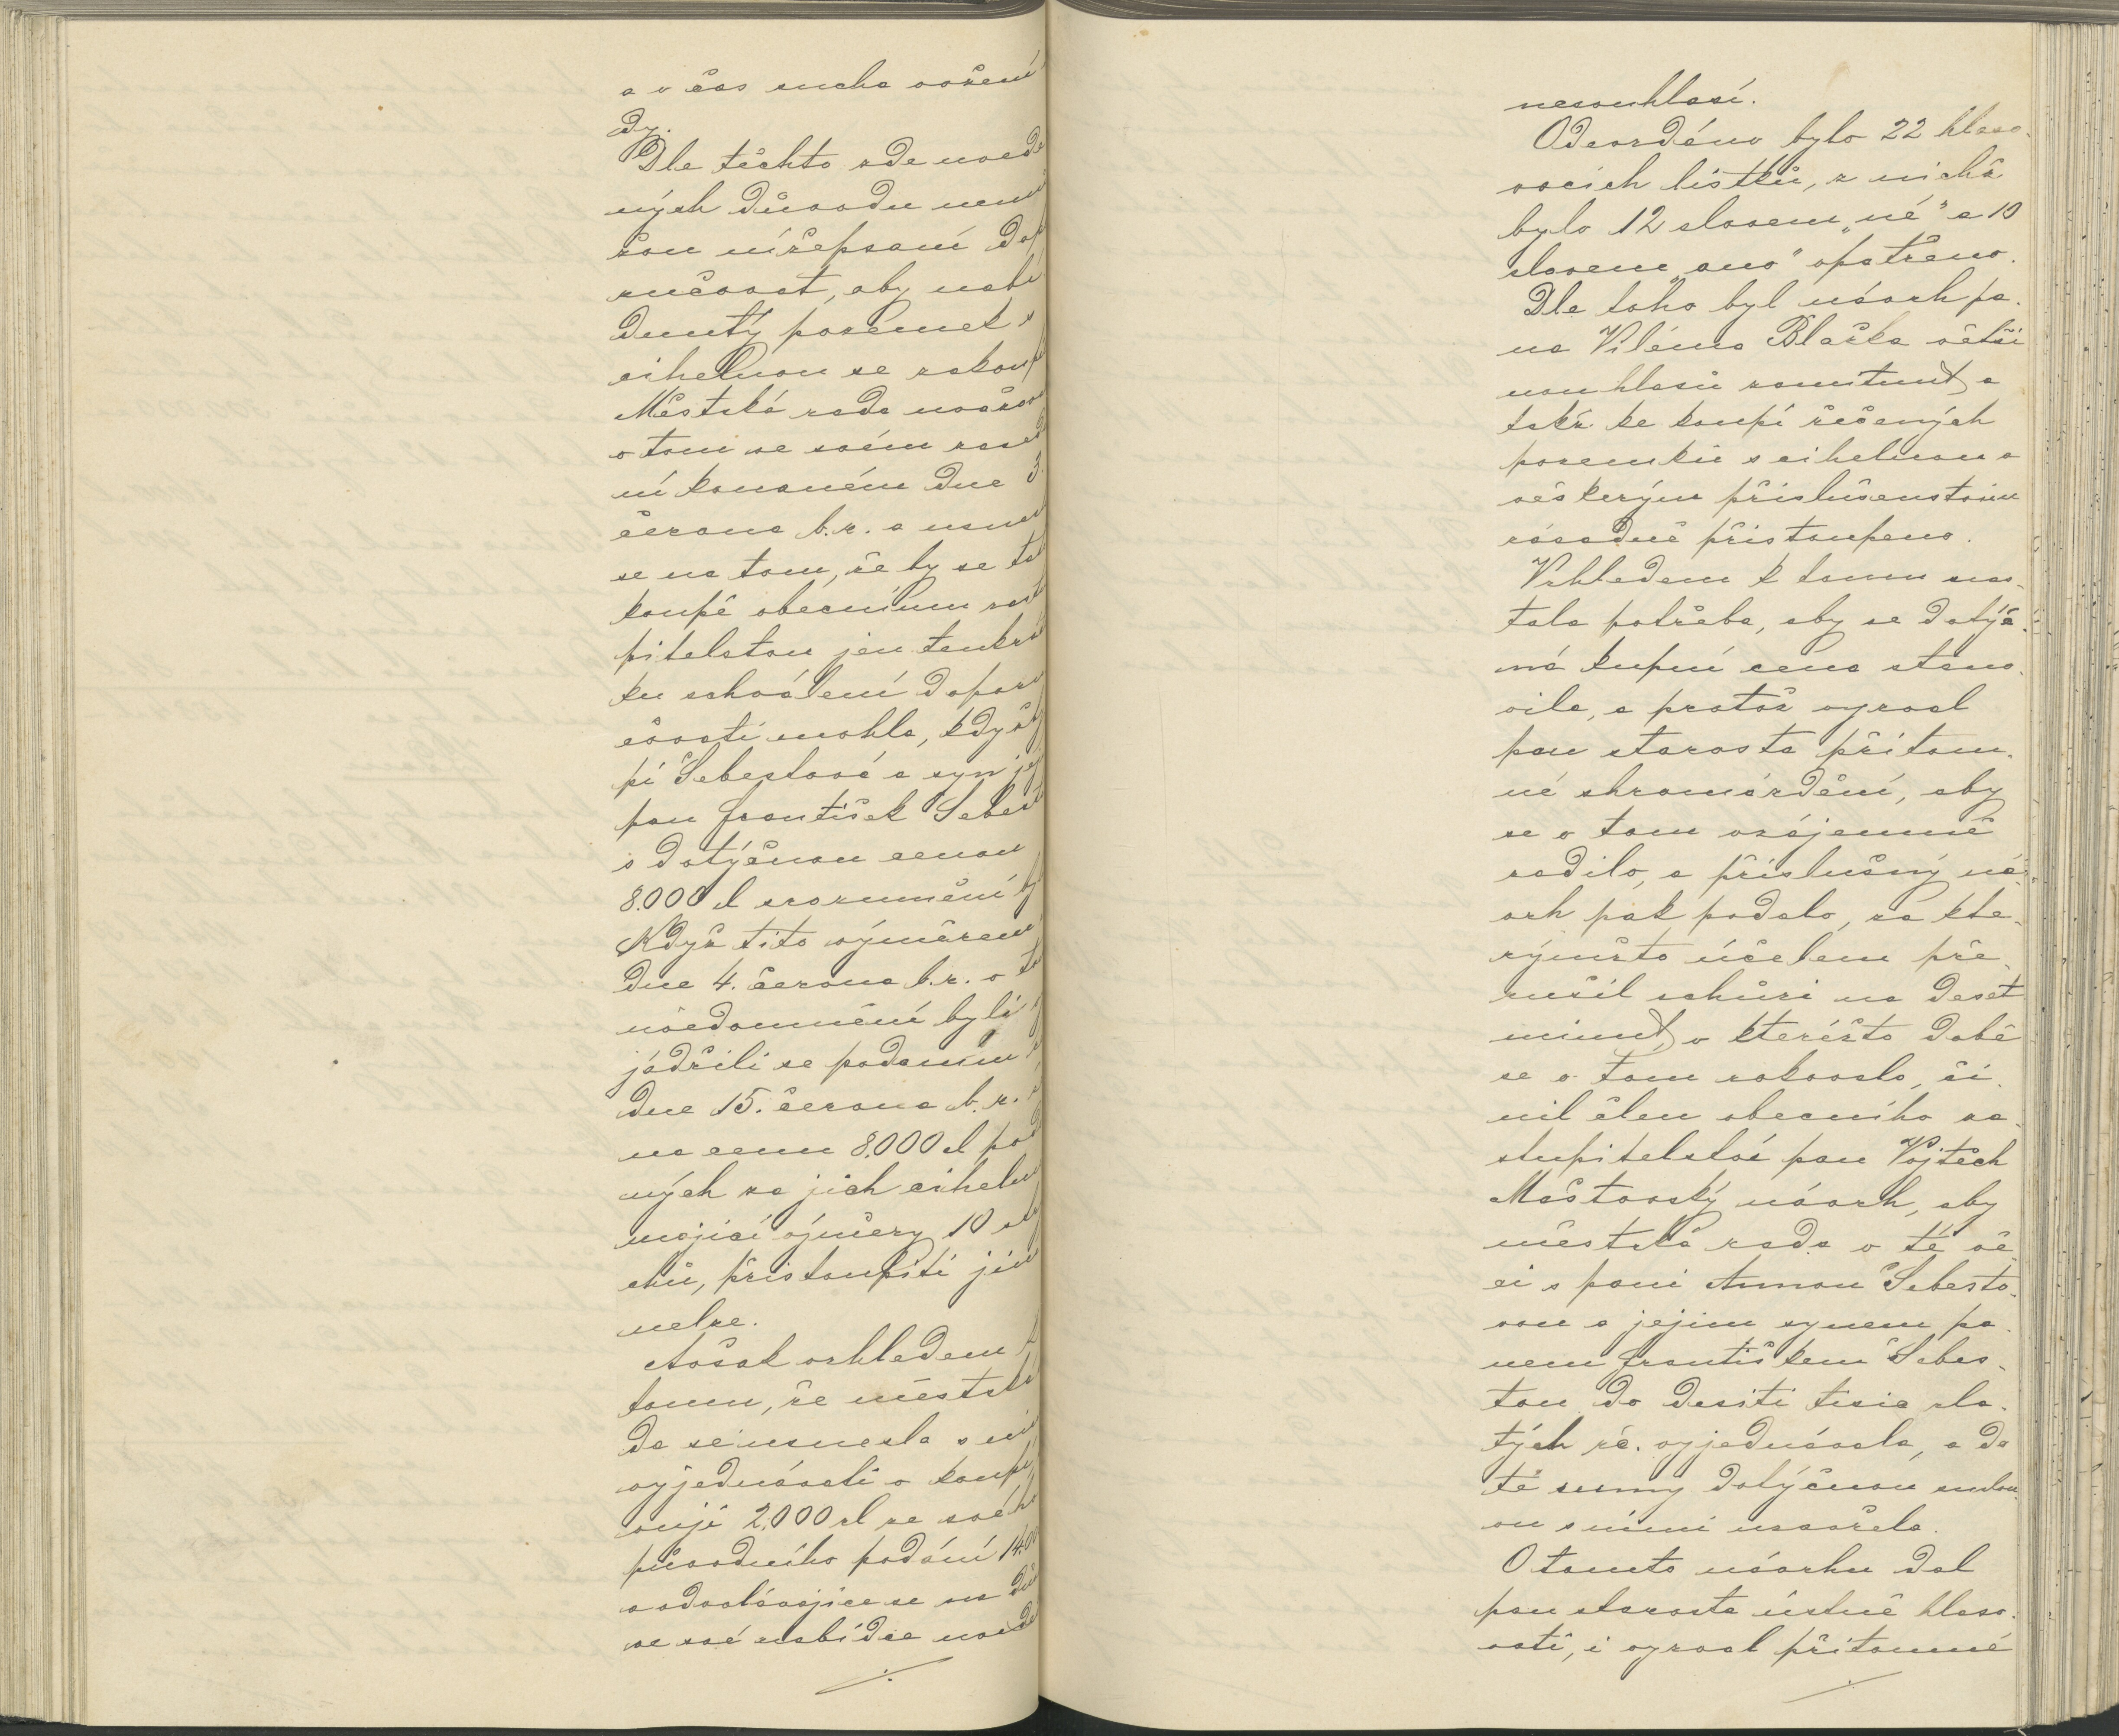 a v čas sucha vožení
dy.
Dle těchto zde uvede
ných důvodu nemů
žou nížepsaní dop
ručovat, aby nabí
dnutý pozemek s
cihelnou se zakoup
Městská rada uvažova
o tom ve svém zased
ní konaném dne 3.
června b.r. a usnes
se na tom, že by se tat
koupě obecnímu zast
pitelstvu jen tenkrá
ku schválení doporu
čovati mohla, kdyžby
pí Šebestová a syn jej
pan František Šebest
s dotýčnou cenou
8.000 zl srozumění by
Když tito výměrem
dne 4. června b.r. o to
uvědomnění byli
jádřili se podaním
dne 15. června b.r.
na cenu 8.000 zl pod
ných za jich cihelnu
mající výměry 10
chů, přistoupiti jim
nelze.
Avšak vzhledem k
tomu, že městská
da se usnesla s nimi
vyjednávati o koupi
ují 2.000 zl ze svého
původního podání 14.00
a odvolávajíce se na dů
ve své nabídce uvede
./.
nesouhlasí.
Odevzdáno bylo 22 hlaso-
vacích lístků, z nichž
bylo 12 slovem „né" a 10
slovem „ano" opatřeno.
Dle toho byl návrh pa-
na Viléma Blažka větši
nou hlasů zamítnut, a
takž ke koupi řečených
pozemků s cihelnou a
veškerým příslušenstvím
zásadně přistoupeno.
Vzhledem k tomu nas-
tala potřeba, aby se dotýč-
ná kupní cena stano-
vila, a protož vyzval
pan starosta přítom-
né shromáždění, aby
se o tom vzájemně
radilo, a příslušný ná-
vrh pak podalo, za kte-
rýmžto účelem pře-
rušil schůzi na deset
minut, v kteréžto době
se o tom rokovalo, či-
nil člen obecního za-
stupitelstva pan Vojtěch
Maštovský návrh, aby
městská rada o té vě-
ci s paní Annou Šebesto-
vou a jejím synem pa-
nem Františkem Šebes-
tou do desíti tisíc zla-
tých rč. vyjednávala, a do
té sumy dotýčnou smlou-
vu s nimi uzavřela.
O tomto návrhu dal
pan starosta ústně hlaso-
vati, i vyzval přítomné
./.